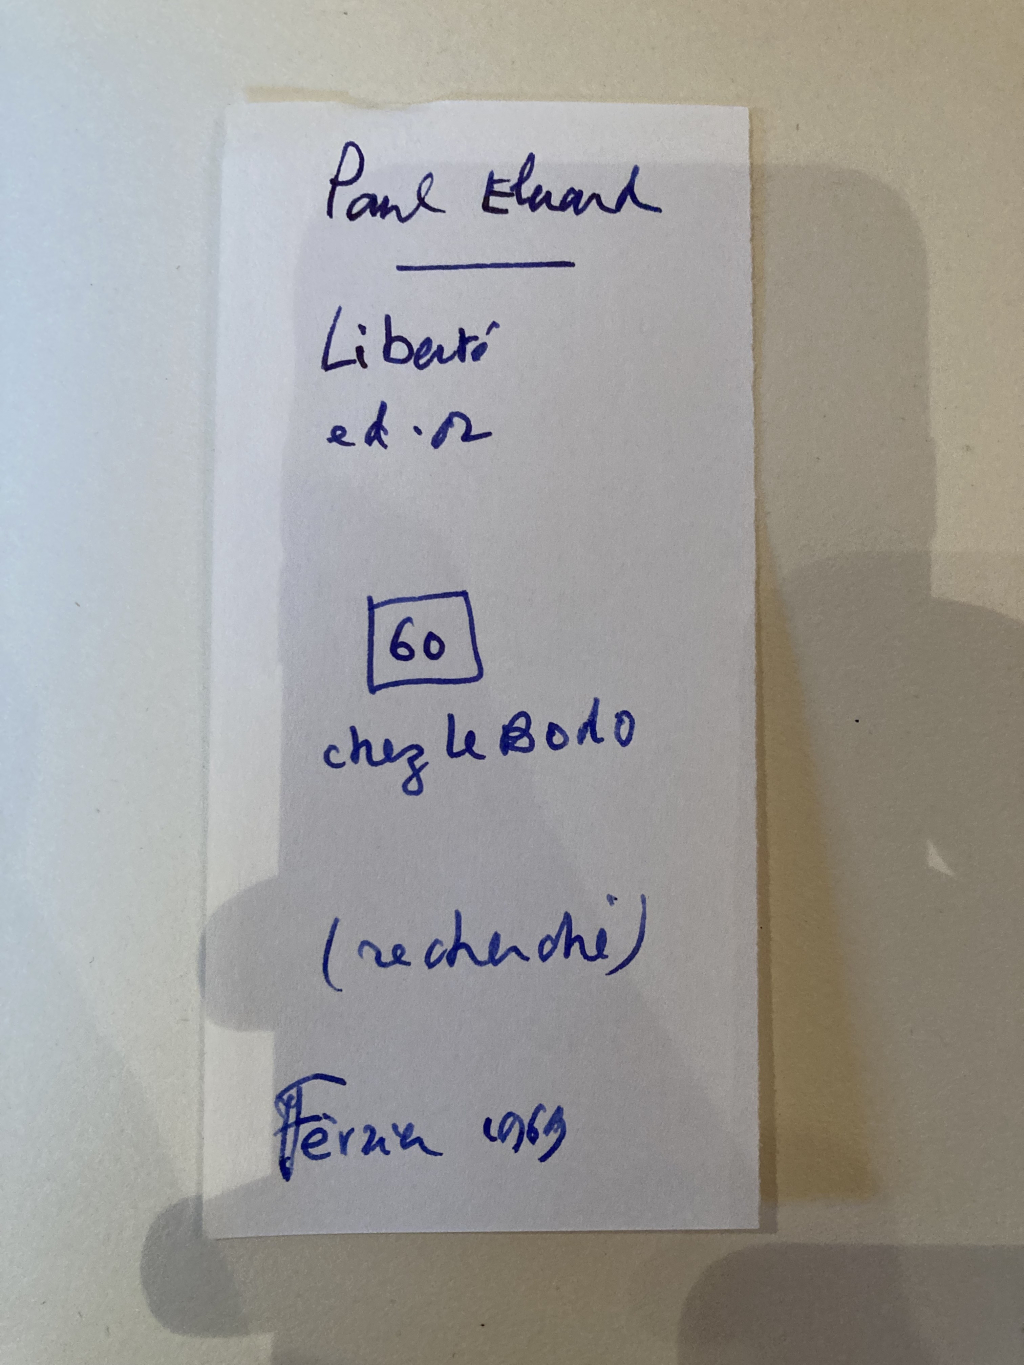 Paul Eluard
Liberté
ed.
60
chez le Bodo
(recherché)
Février 1969